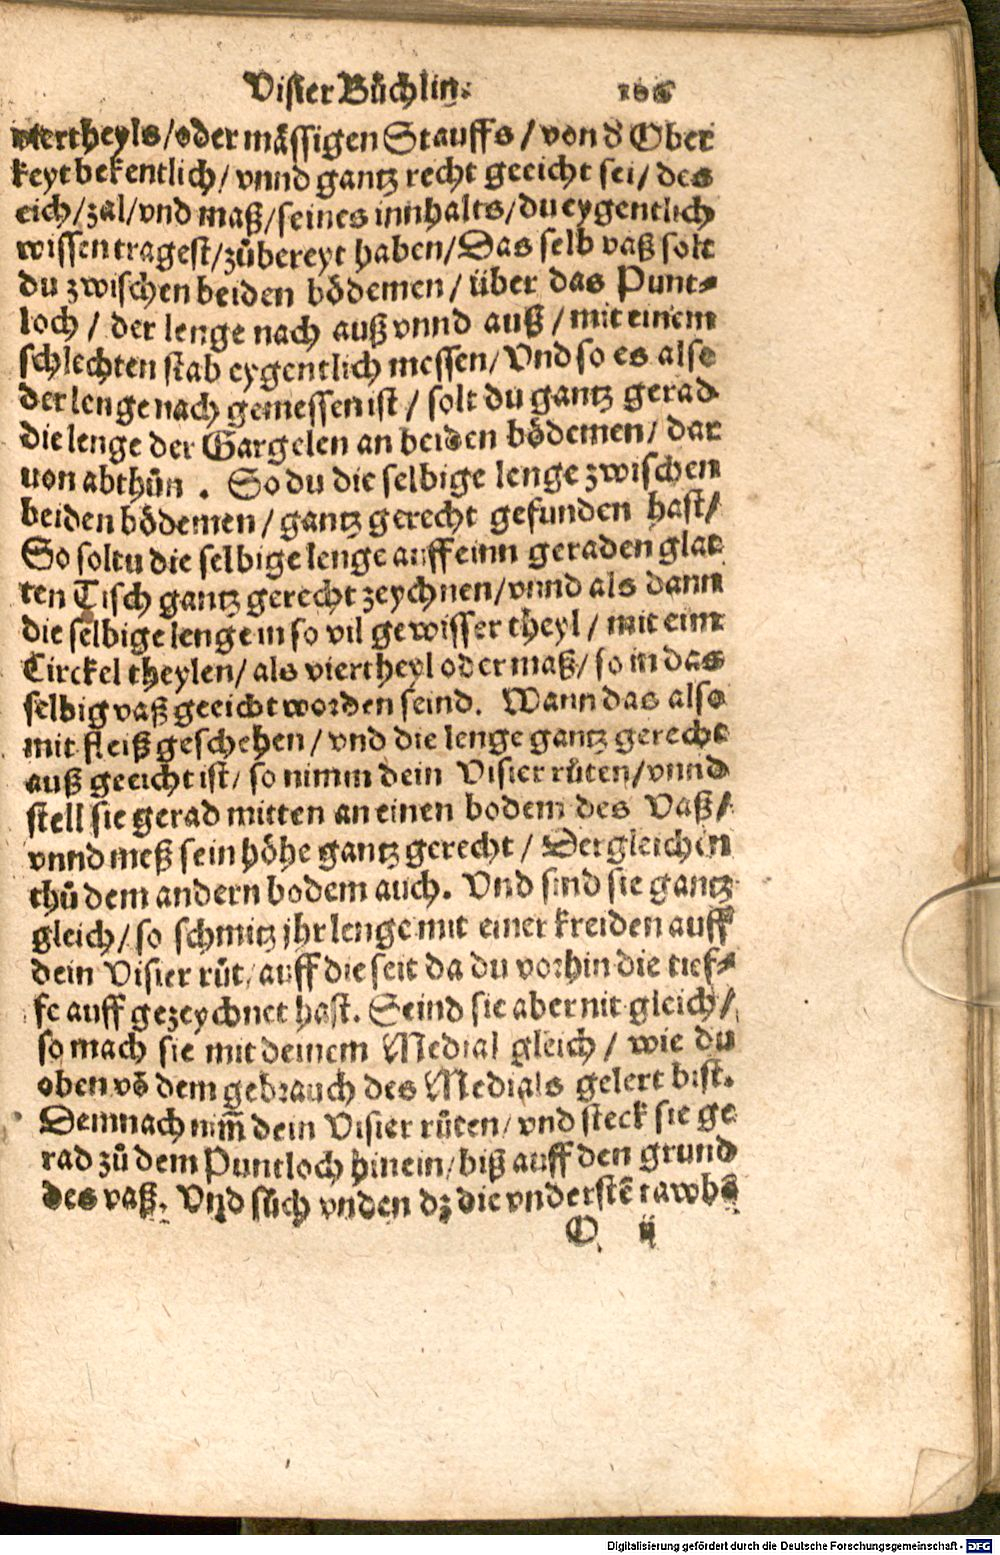 Visier Bůchlin.
viertheyls/oder mässigen Stauffs/von d̕ Ober
keyt bekentlich/vnnd gantz recht geeicht sei/des
eich/zal/vnd maß/seines innhalts/du eygentlich
wissen tragest/zůbereyt haben/Das selb vaß solt
du zwischen beiden bödemen/über das Punt⸗
loch/der lenge nach auß vnnd auß/mit einem
schlechten stab eygentlich messen/Vnd so es also
der lenge nach gemessen ist/solt du gantz gerad
die lenge der Gargelen an beiden bödemen/dar
von abthůn. So du die selbige lenge zwischen
beiden bödemen/gantz gerecht gefunden hast/
So soltu die selbige lenge auff einn geraden glat
ten Tisch gantz gerecht zeychnen/vnnd als dann
die selbige lenge in so vil gewisser theyl/mit eim
Circkel theylen/als viertheyl oder maß/so in das
selbig vaß geeicht worden seind. Wann das also
mit fleiß geschehen/vnd die lenge gantz gerecht
auß geeicht ist/so nimm dein Visier růten/vnnd
stell sie gerad mitten an einen bodem des Vaß/
vnnd meß sein höhe gantz gerecht/Dergleichen
thů dem andern bodem auch. Vnd sind sie gantz
gleich/so schmitz jhr lenge mit einer kreiden auff
dein Visier růt/auff die seit da du vorhin die tief⸗
fe auff gezeychnet hast. Seind sie aber nit gleich/
so mach sie mit deinem Medial gleich/wie du
oben vō dem gebrauch des Medials gelert bist.
Demnach nim̄ dein Visier růten/vnd steck sie ge
rad zů dem Puntloch hinein/biß auff den grund
des vaß. Vnd sůch vnden dz die vnderstē rawhē
O ij
Digitalisierung gefördert durch die Deutsche Forschungsgemeinschaft - DFG